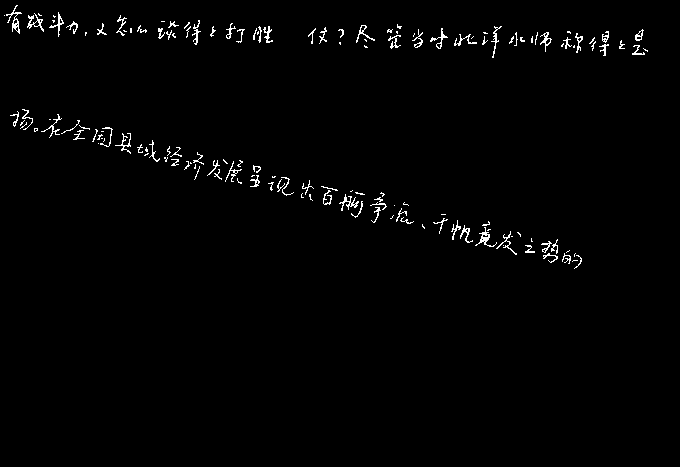 有战斗力，又怎么谈得上打胜仗？尽管当时北洋水师称得上是
场。在全国县域经济发展呈现出百舸争流、千帆竟发之势的